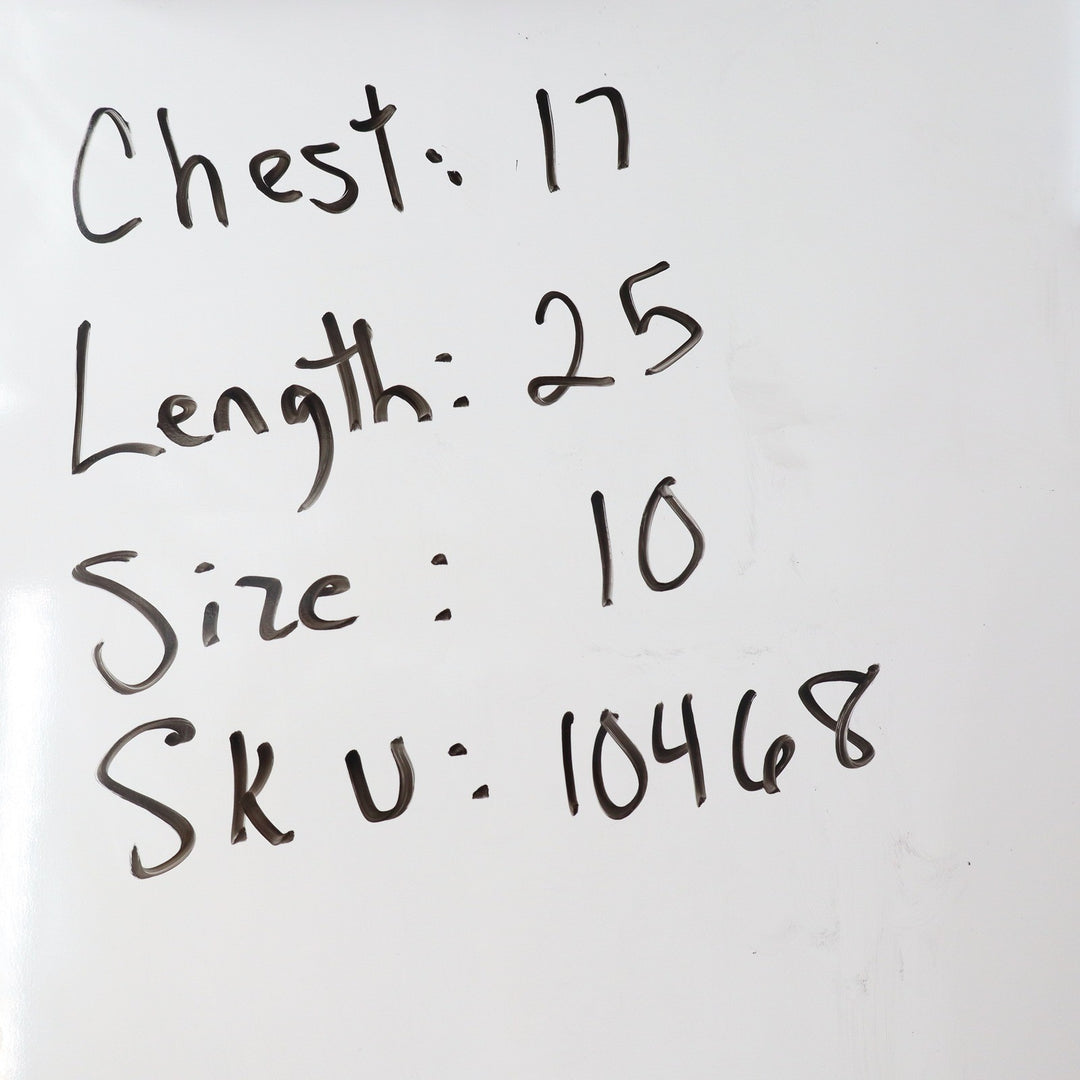 Chest: 17
Length: 25
Size: 10
SKU: 10468